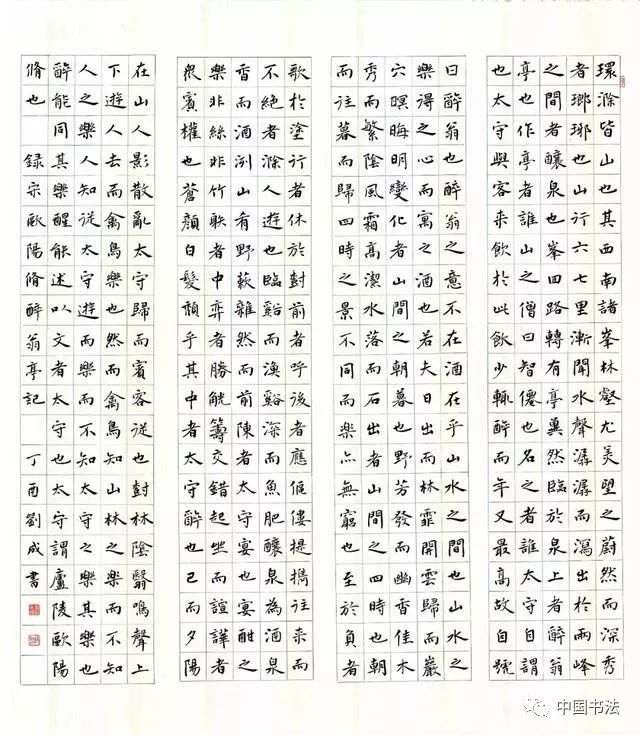 環滁皆山也其西南諸峯林壑尤美望之蔚然而深秀
者瑯琊也山行六七里漸聞水聲潺潺而瀉出於兩峰
之間者釀泉也峯回路轉有亭翼然臨於泉上者醉翁
亭也作亭者誰山之僧曰智僊也名之者誰太守自謂
也太守與客來飲於此飲少輒醉而年又最高故自號
曰醉翁也醉翁之意不在酒在乎山水之間也山水之
樂得之心而寓之酒也若夫日出而林霏開雲歸而巖
穴暝晦明變化者山間之朝暮也野芳發而幽香佳木
秀而繁陰風霜高潔水落而石出者山間之四時也朝
而往暮而歸四時之景不同而樂亦無窮也至於負者
歌於塗行者休於樹前者呼後者應傴僂提攜往來而
不絕者滁人遊也臨谿而漁谿深而魚肥釀泉為酒泉
香而酒洌山肴野蔌雜然而前陳者太守宴也宴酣之
樂非絲非竹躲者中弈者勝觥籌交錯起坐而諠譁者
眾賓懽也蒼顏白髮頹乎其中者太守醉也已而夕陽
在山人影散亂太守歸而賓客從也樹林陰翳鳴聲上
下遊人去而禽鳥樂也然而禽鳥知山林之樂而不知
人之樂人知從太守遊而樂而不知太守之樂其樂也
醉能同其樂醒能述以文者太守也太守謂廬陵歐陽
脩也 錄宋歐陽脩醉翁亭記 丁酉劉成書
中国书法